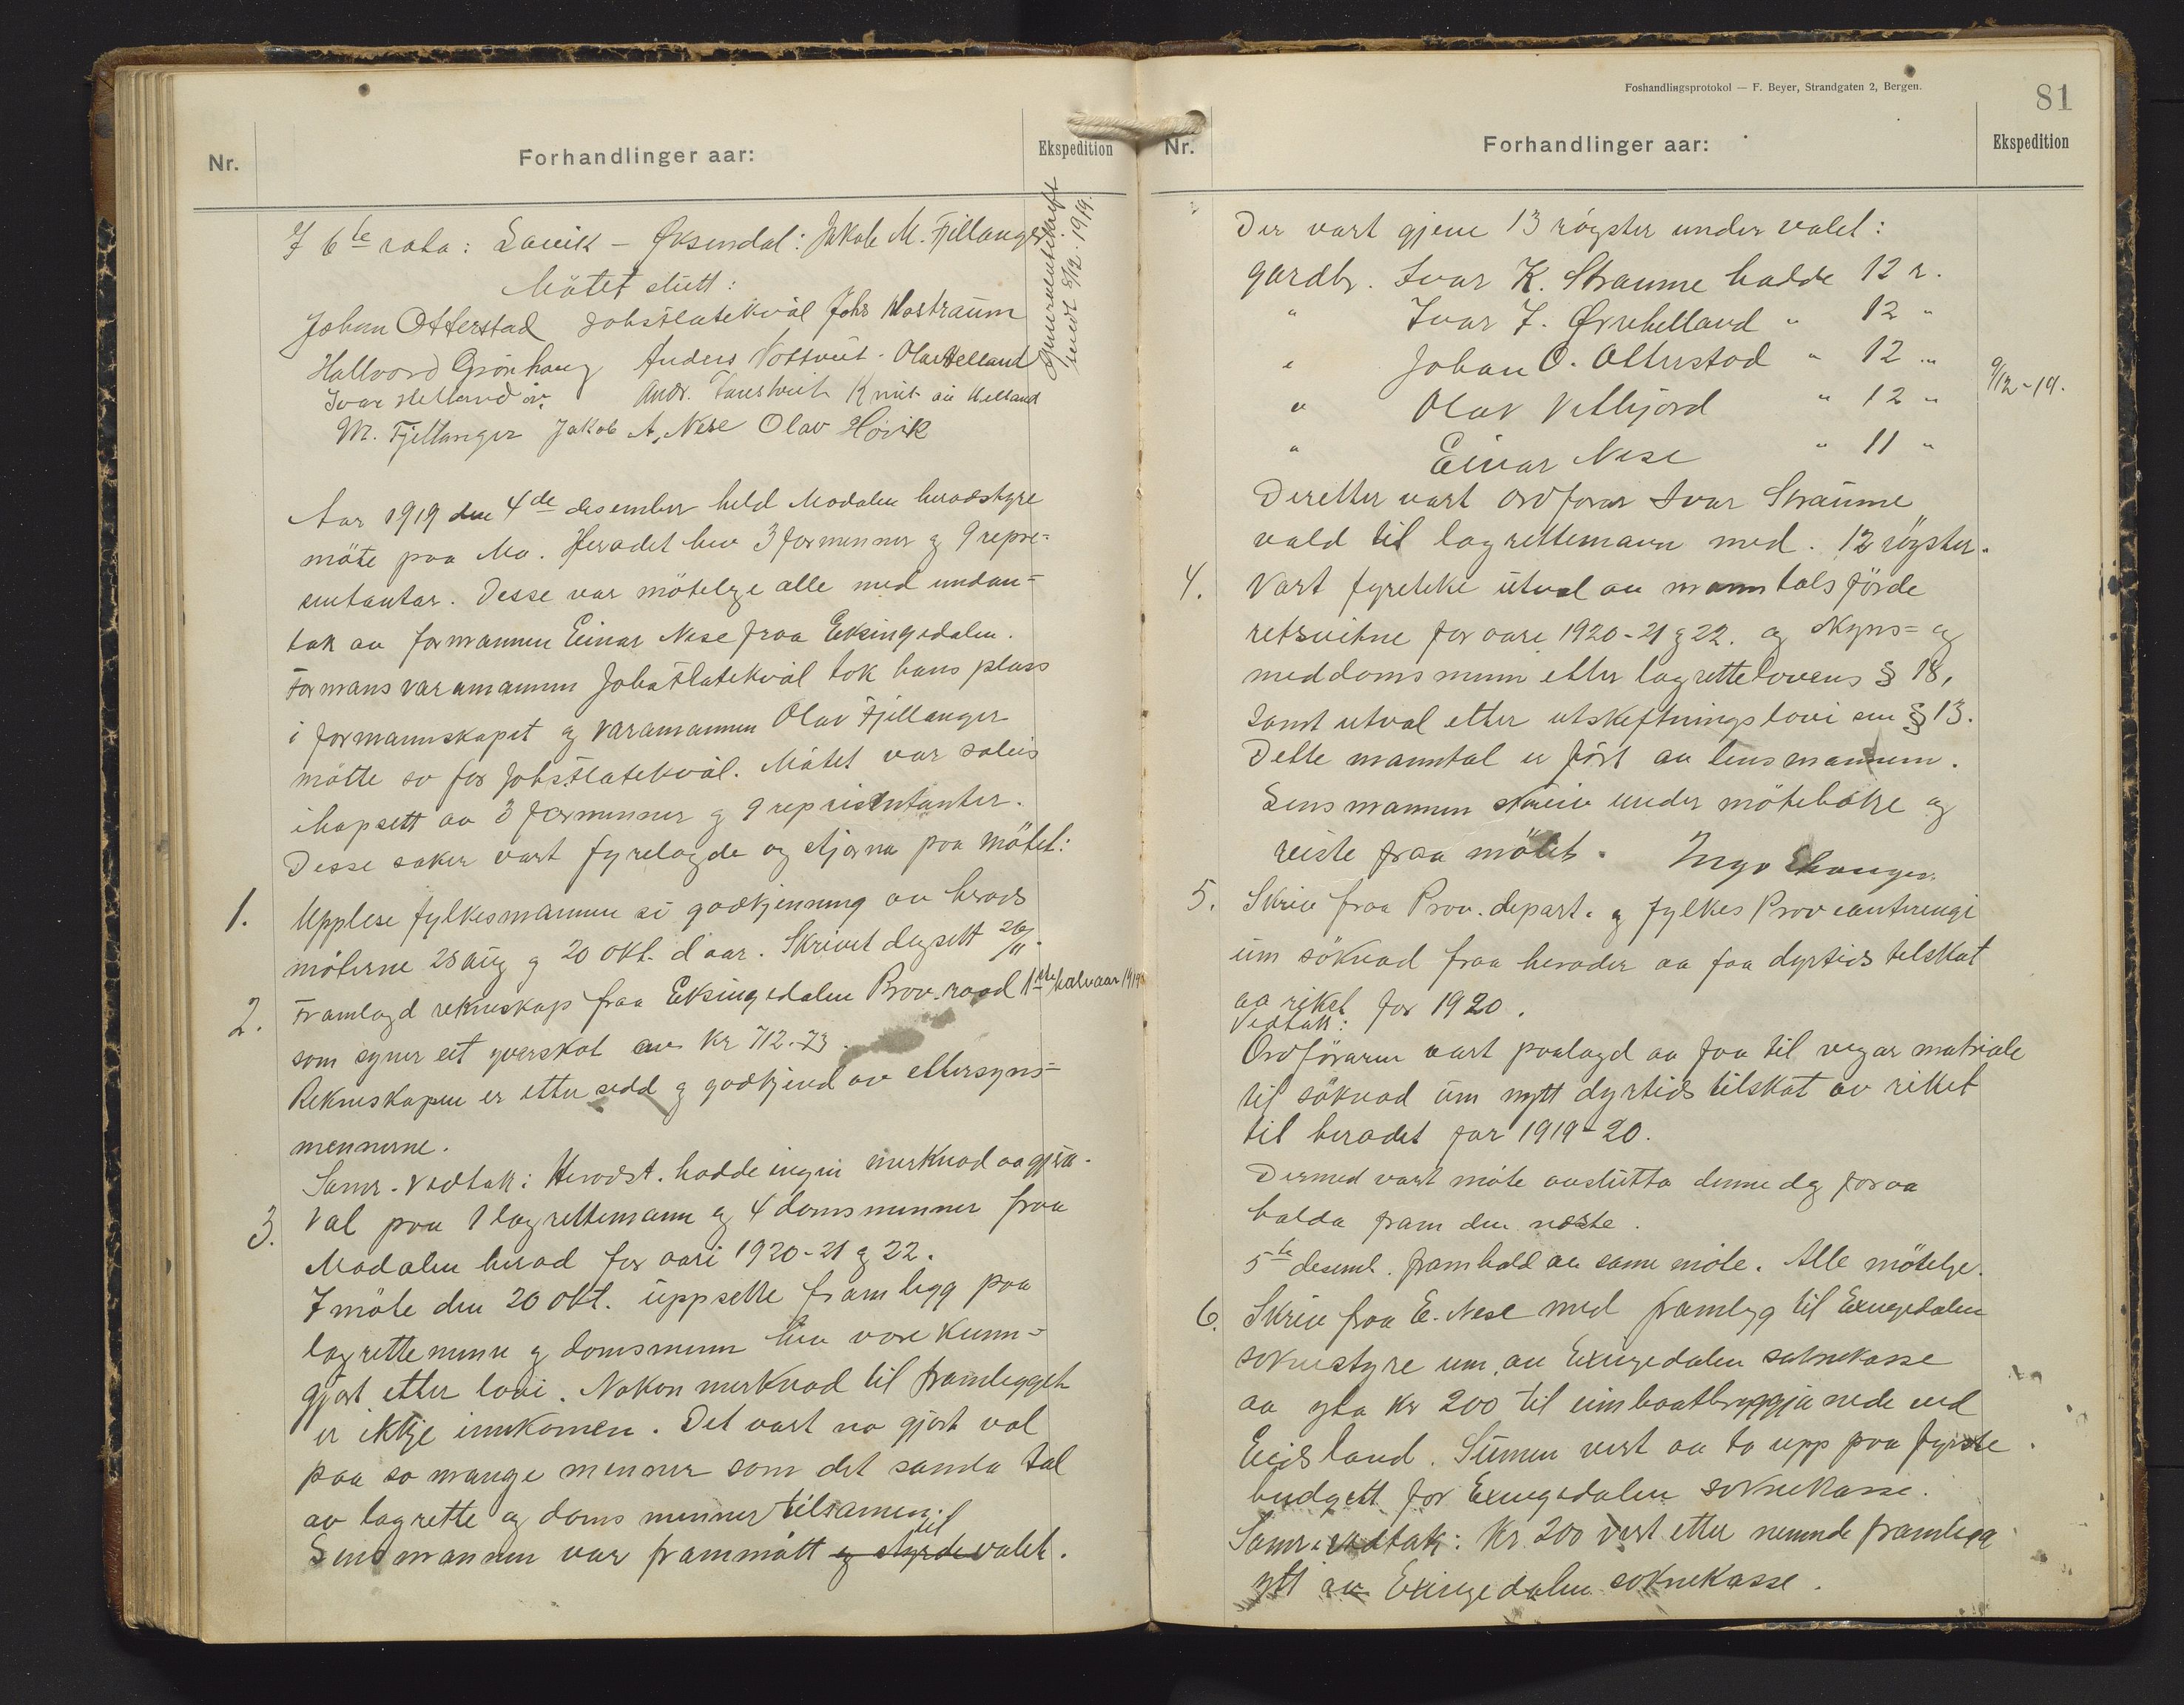 Nr.
Forhandlinger aar:
Ekspedition
I 6te rota: Lavik - Øksendal: Jakob M. Fjellanger
Mötet slutt:
Johan Otterstad Johs Flatekvål Johs Mostraum
Hallvord Grönhaug Anders Vottveit Olav Helland
Ivar Helland Andr. Knut Helland
M. Fjellanger Jakob A. Nese Olav Hövik
sendt 8/12 1919.
Aar 1919 den 4de desember held Modalen heradstyre
möte paa Mo. Heradet hev 3 formenner og 9 repre=
sentantar. Desse var mötelge alle med undan=
tak av formannen Einar Nese fraa Eksingedalen.
Formans varamannen Johs Flatekvål tok hans plass
i formannskapet og varamannen Olav Fjellanger
mötte so for Johs Flatekvål. Mötet var soleis
ihopsett av 3 formenner og 9 representanter.
Desse saker vart fyrelagde og stjorna paa mötet:
1. Upplese fylkesmannen si godkjenning av herads
möterne 28 aug og 20 okt. d aar. Skrivet dagsett 26/11.
2. Framlagd rekneskap fraa Eksingedalen Prov.raad 1ste halvaar 1919
som syner eit yverskot av kr 712.73.
Rekneskapen er etter sedd og godkjend av ettersyns=
mennerne.
Samr. Vedtak: Heradst. hadde ingen merknad aa gjera.
3. Val paa 1 lagrettemann og 4 domsmenner fraa
Modalen herad for aari 1920-21 og 22.
I möte den 20 okt. uppsette framlegg paa
lagrettemenn og domsmenn hev vore kunn=
gjort etter lovi. Nokon merknad til framlegget
er ikkje innkomen. Det vart no gjort val
paa so mange menner som det samla tal
av lagrette og doms menner tilsamen.
til
Lensmannen var frammött og styrde valet.
Foshandlingsprotokol — F. Beyer, Strandgaten 2, Bergen.
81
Nr.
Forhandlinger aar:
Ekspedition
Der vart gjeve 13 röyster under valet:
gardbr. Ivar K. Straume hadde 12 r.
" Ivar I. Øvrehelland " 12 "
" Johan O. Otterstad " 12 "
9/12-19.
" Olav Vetlejord " 12 "
" Einar Nese " 11 "
Deretter vart ordförar Ivar Straume
vald til lagrettemann med. 12 röyster.
4. Vart fyretekke utval av manntalsförde
retsvitne for aare 1920-21 og 22. og skyns= og
meddomsmenn etter lagrettelovens § 18,
samt utval etter utskiftningslovi sin § 13.
Dette manntal er fört av lensmannen.
Lensmannen skreiv under möteboke og
reiste fraa mötet.
5. Skriv fraa Prov.depart. og fylkes Provianterengi
um söknad fraa herader aa faa dyrtids telskot
av riket for 1920.
Vedtak:
Ordföraren vart paalagd aa faa til vegar matriale
til söknad um nytt dyrtids tilskot av riket
til heradet for 1919-20.
Dermed vart möte avslutta denne dag for aa
halda fram den neste.
5te desemb. framhald av same möte. Alle mötelge.
6. Skriv fraa E. Nese med framlegg til Exingedalen
soknestyre um av Exingedalen soknekasse
aa yta kr 200 til eimbaatbryggja nede ved
Eidsland. Sumen vert aa ta upp paa fyrste
budgett for Exingedalen soknekasse.
Samr. vedtak: Kr. 200 vert etter nemnde framlegg
ytt av Exingedalen soknekasse.